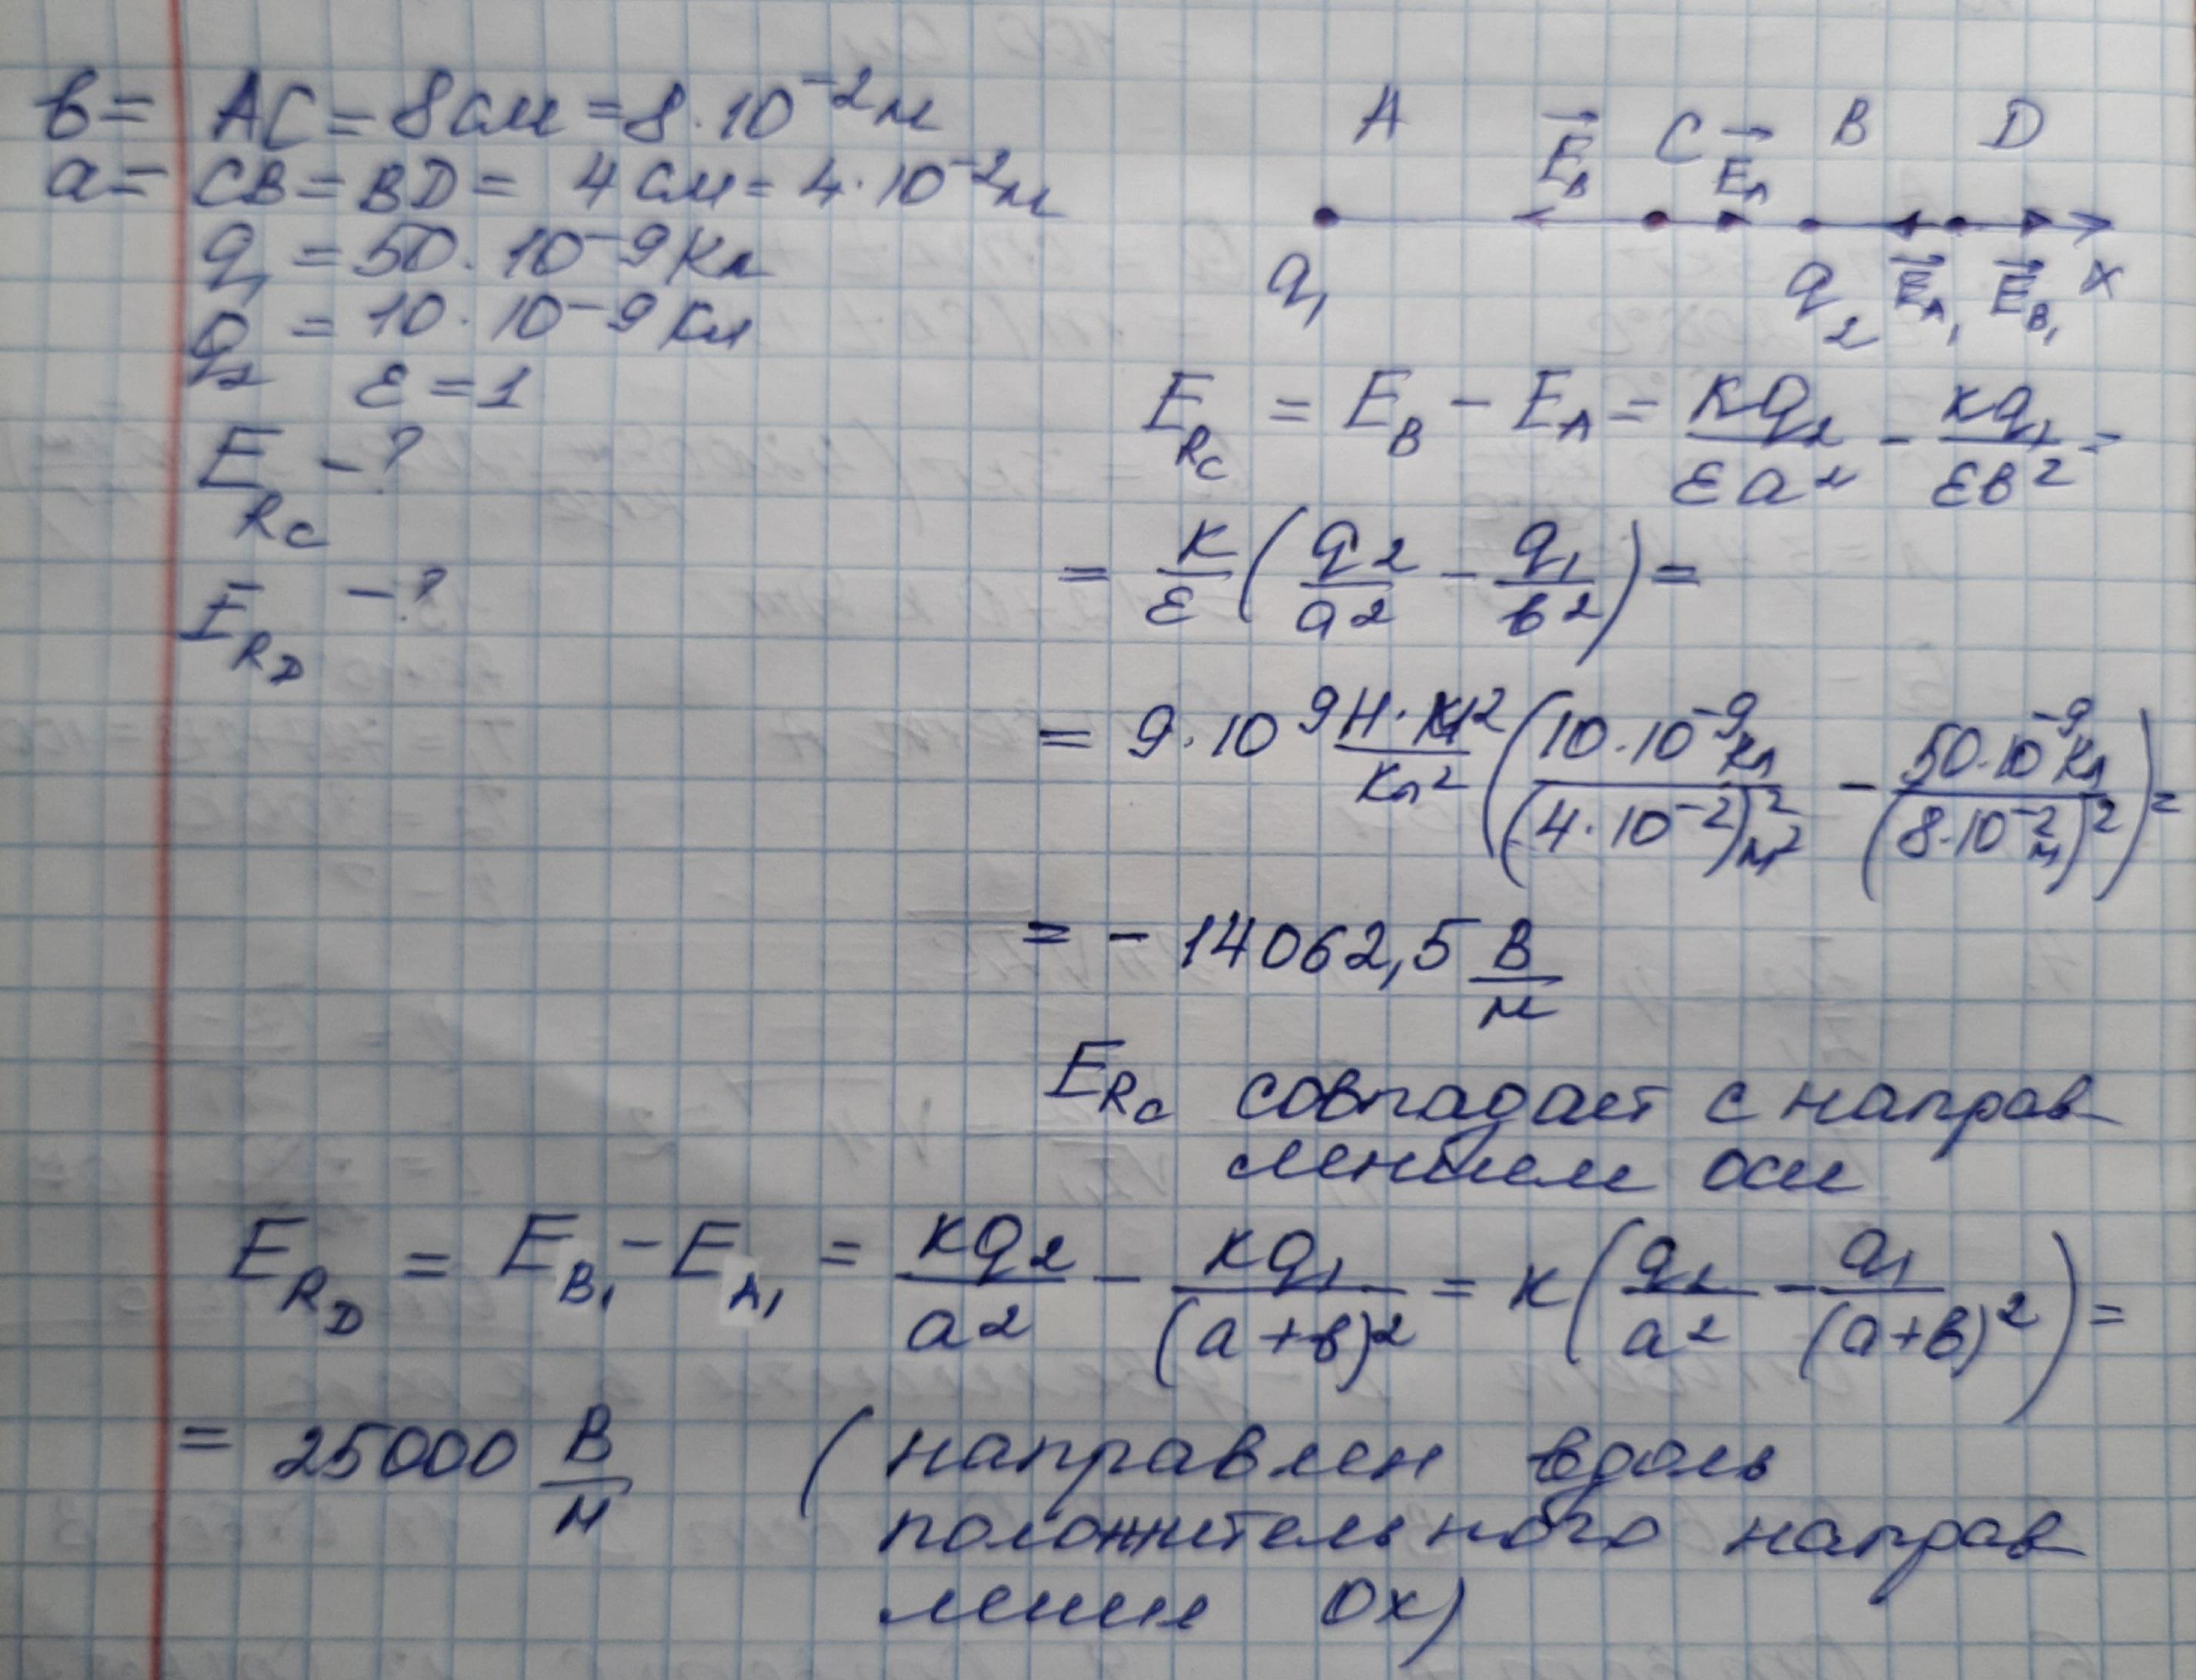 в = AC = 8 см = 8·10⁻² м
a = CB = BD = 4 см = 4·10⁻² м
q₁ = 50·10⁻⁹ Кл
q₂ = 10·10⁻⁹ Кл
ε = 1
E_Rc - ?
E_RD - ?
A E⃗_B C E⃗_A B D
q₁ q₂ E⃗_A₁ E⃗_B₁ x
E_Rc = E_B - E_A = кq₂/εa² - кq₁/εв² =
= к/ε (q₂/a² - q₁/в²) =
= 9·10⁹ Н·м²/Кл² (10·10⁻⁹ Кл/(4·10⁻²)² м² - 50·10⁻⁹ Кл/(8·10⁻² м)²) =
= - 14062,5 В/м
E_Rc совпадает с направ
лением оси
E_RD = E_B₁ - E_A₁ = кq₂/a² - кq₁/(a+в)² = к(q₂/a² - q₁/(a+в)²) =
= 25000 В/м (направлен вдоль
положительного направ
ления Ox)